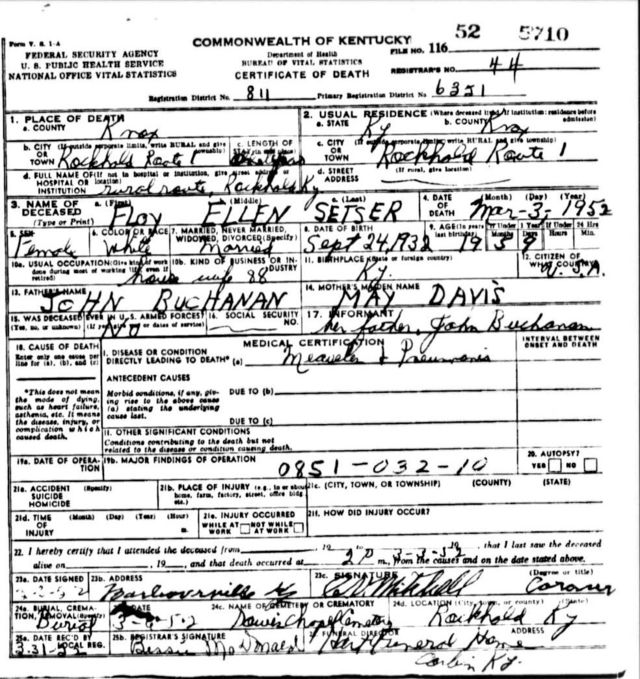 Form V. S. 1-A
FEDERAL SECURITY AGENCY
U. S. PUBLIC HEALTH SERVICE
NATIONAL OFFICE VITAL STATISTICS
COMMONWEALTH OF KENTUCKY
Department of Health
BUREAU OF VITAL STATISTICS
CERTIFICATE OF DEATH
FILE NO. 116 52 5710
REGISTRAR'S NO. 44
Registration District No. 811 Primary Registration District No. 6351
1. PLACE OF DEATH
a. COUNTY Knox
2. USUAL RESIDENCE (Where deceased lived. If institution: residence before admission)
a. STATE Ky b. COUNTY Knox
b. CITY (If outside corporate limits, write RURAL and give township) OR TOWN Rockhold Route 1
c. LENGTH OF STAY (in this place)
c. CITY (If outside corporate limits, write RURAL and give township) OR TOWN Rockhold Route 1
d. FULL NAME OF (If not in hospital or institution, give street address or location) HOSPITAL OR INSTITUTION rural route, Rockhold Ky
d. STREET ADDRESS (If rural, give location)
3. NAME OF DECEASED (Type or Print)
a. (First) Floy b. (Middle) ELLEN c. (Last) SETSER
4. DATE OF DEATH (Month) (Day) (Year) Mar-3-1952
5. SEX Female
6. COLOR OR RACE White
7. MARRIED, NEVER MARRIED, WIDOWED, DIVORCED (Specify) Married
8. DATE OF BIRTH Sept 24, 1932
9. AGE (In years last birthday) 19 If Under 1 Year Months 5 Days 9 If Under 24 Hrs Hours Min.
10a. USUAL OCCUPATION (Give kind of work done during most of working life, even if retired) house wife
10b. KIND OF BUSINESS OR INDUSTRY 88
11. BIRTHPLACE (State or foreign country) Ky.
12. CITIZEN OF WHAT COUNTRY? U.S.A.
13. FATHER'S NAME JOHN BUCHANAN
14. MOTHER'S MAIDEN NAME MAY DAVIS
15. WAS DECEASED EVER IN U.S. ARMED FORCES? (Yes, no, or unknown) (If yes, give war or dates of service)
16. SOCIAL SECURITY NO.
17. INFORMANT her father, John Buchanan
18. CAUSE OF DEATH
Enter only one cause per line for (a), (b), and (c)
MEDICAL CERTIFICATION
INTERVAL BETWEEN ONSET AND DEATH
I. DISEASE OR CONDITION DIRECTLY LEADING TO DEATH* (a) Measeles & Pneumonia
*This does not mean the mode of dying, such as heart failure, asthenia, etc. It means the disease, injury, or complication which caused death.
ANTECEDENT CAUSES
Morbid conditions, if any, giving rise to the above cause (a) stating the underlying cause last.
DUE TO (b)
DUE TO (c)
II. OTHER SIGNIFICANT CONDITIONS
Conditions contributing to the death but not related to the disease or condition causing death.
19a. DATE OF OPERATION
19b. MAJOR FINDINGS OF OPERATION
0851-032-10
20. AUTOPSY?
YES NO
21a. ACCIDENT SUICIDE HOMICIDE (Specify)
21b. PLACE OF INJURY (e.g., in or about home, farm, factory, street, office bldg., etc.)
21c. (CITY, TOWN, OR TOWNSHIP) (COUNTY) (STATE)
21d. TIME OF INJURY (Month) (Day) (Year) (Hour)
21e. INJURY OCCURRED
WHILE AT WORK NOT WHILE AT WORK
21f. HOW DID INJURY OCCUR?
22. I hereby certify that I attended the deceased from , 19 , to 3-3-52, 19 , that I last saw the deceased
alive on , 19 , and that death occurred at 2 P m., from the causes and on the date stated above.
23a. DATE SIGNED
23b. ADDRESS Barbourville Ky
23c. SIGNATURE Mitchell Coroner
24a. BURIAL, CREMATION, REMOVAL (Specify) Burial
24b. DATE
24c. NAME OF CEMETERY OR CREMATORY Davis Chapel Cemetery
24d. LOCATION (City, town, or county) (State) Rockhold Ky
25a. DATE REC'D BY LOCAL REG. 3-31-52
25b. REGISTRAR'S SIGNATURE Bessie McDonald
FUNERAL DIRECTOR ADDRESS Hart Funeral Home
Corbin Ky.